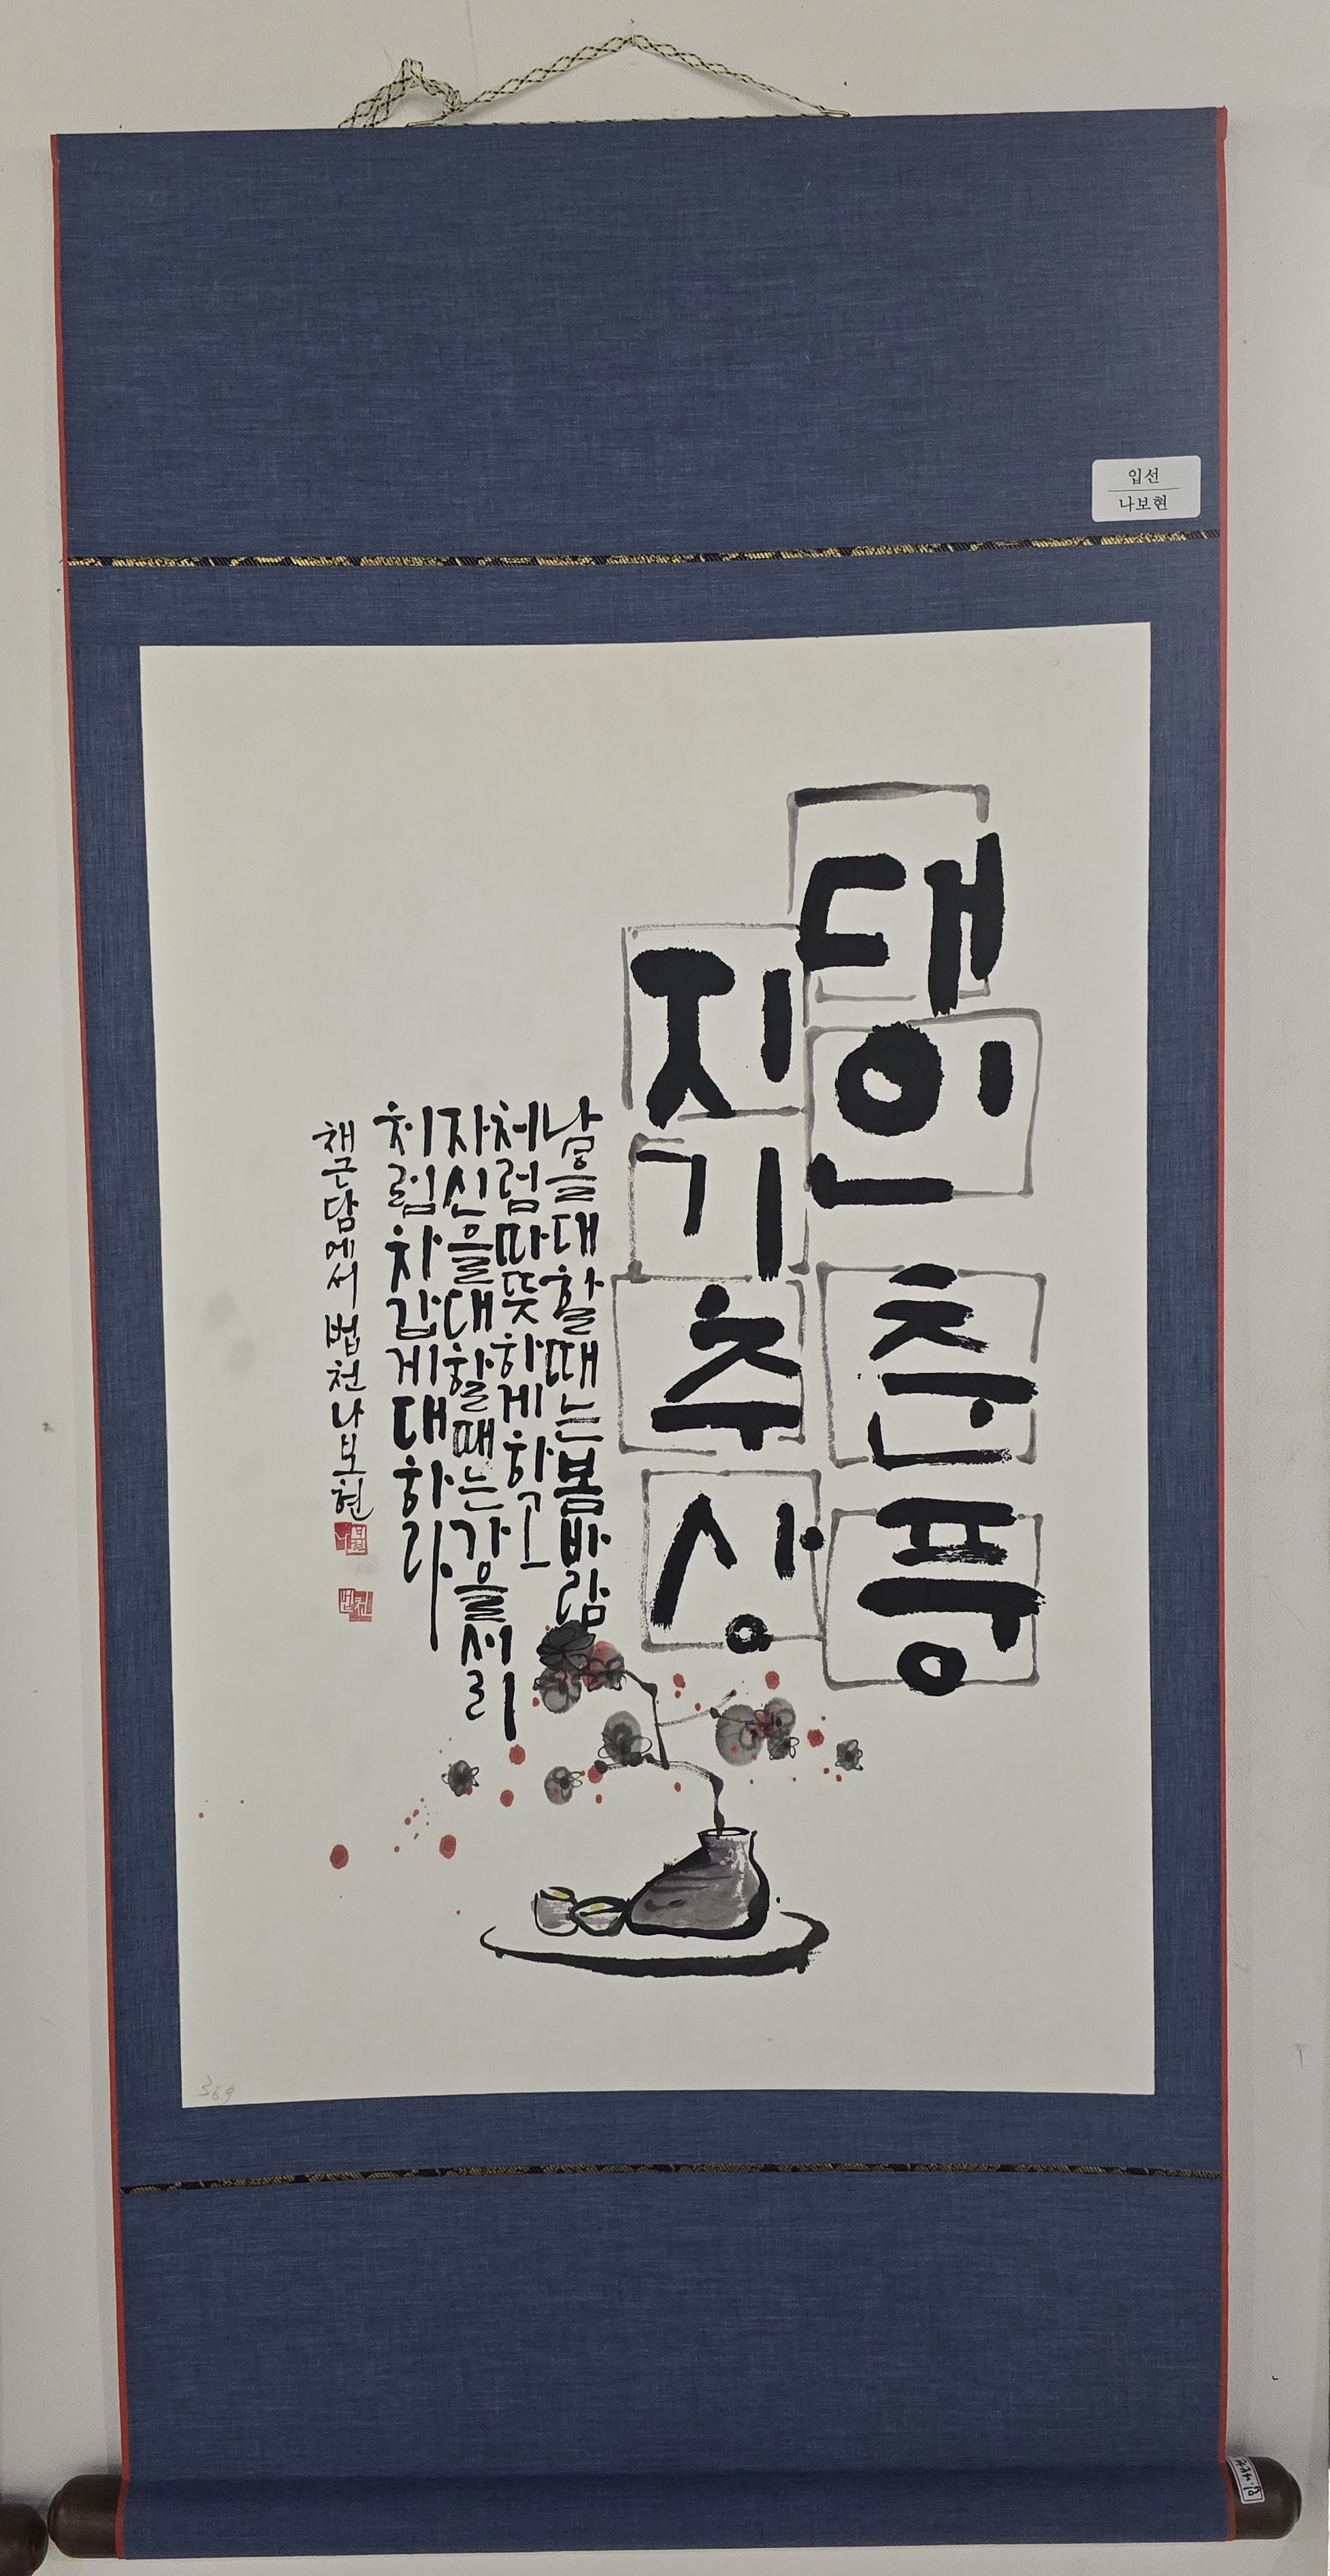 입선
나보현
대인춘풍
지기추상
남을대할때는봄바람
처럼따뜻하게하고
자신을대할때는가을서리
처럼차갑게대하라
채근담에서 법천나보현
369